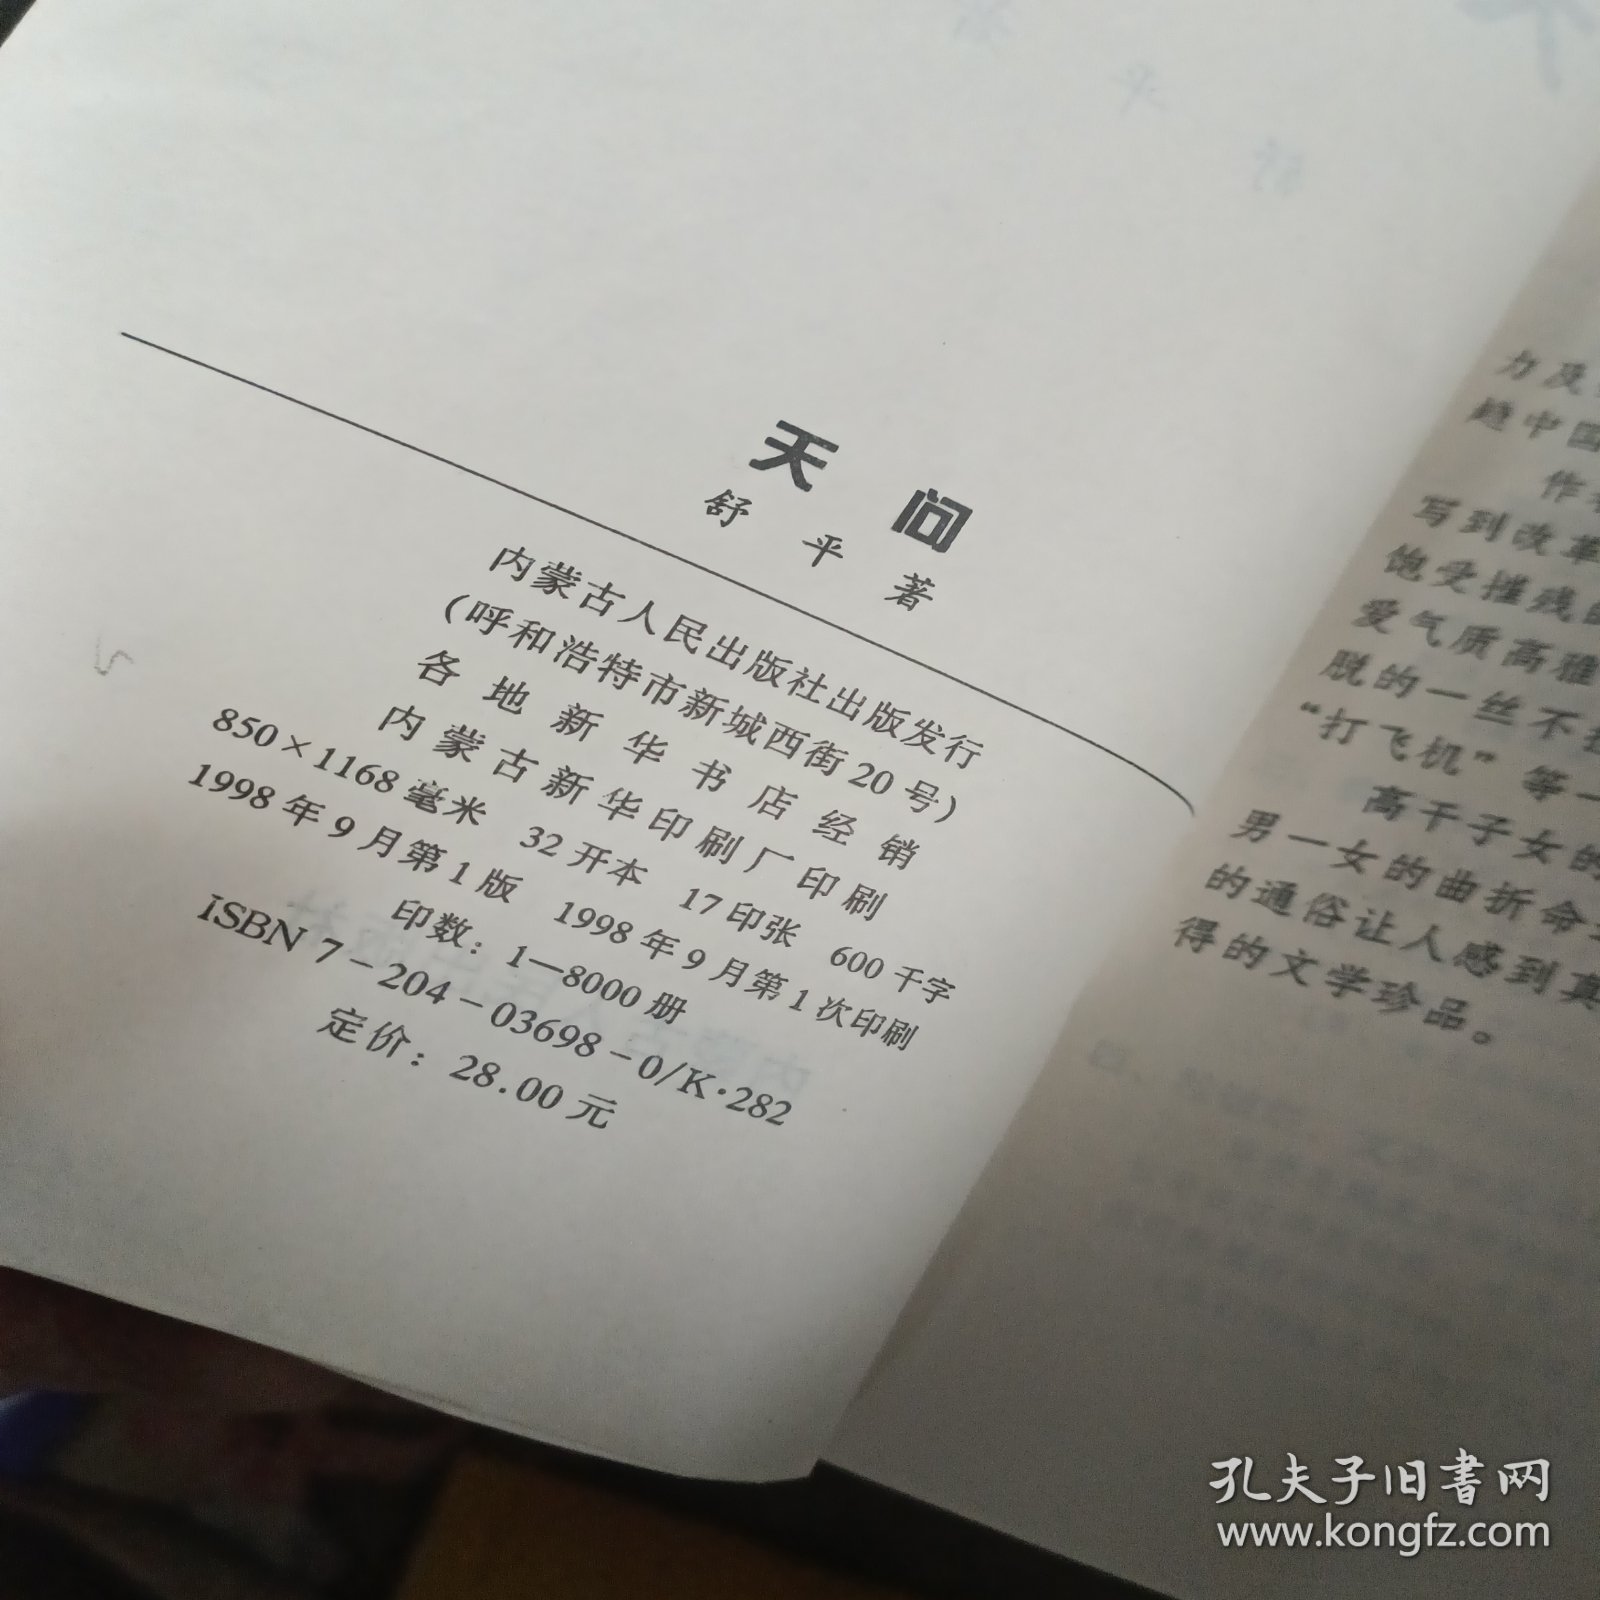 天 问
舒 平 著
内蒙古人民出版社出版发行
(呼和浩特市新城西街 20 号)
各地新华书店经销
内蒙古新华印刷厂印刷
850×1168 毫米 32 开本 17 印张 600 千字
1998 年 9 月第 1 版 1998 年 9 月第 1 次印刷
印数：1—8000 册
ISBN 7－204－03698－0/K·282
定价：28.00 元
力及
趟中国
作
写到改革
饱受摧残的
爱气质高雅
脱的一丝不
“打飞机”等一
高干子女的
男一女的曲折命
的通俗让人感到真
得的文学珍品。
孔夫子旧书网
www.kongfz.com